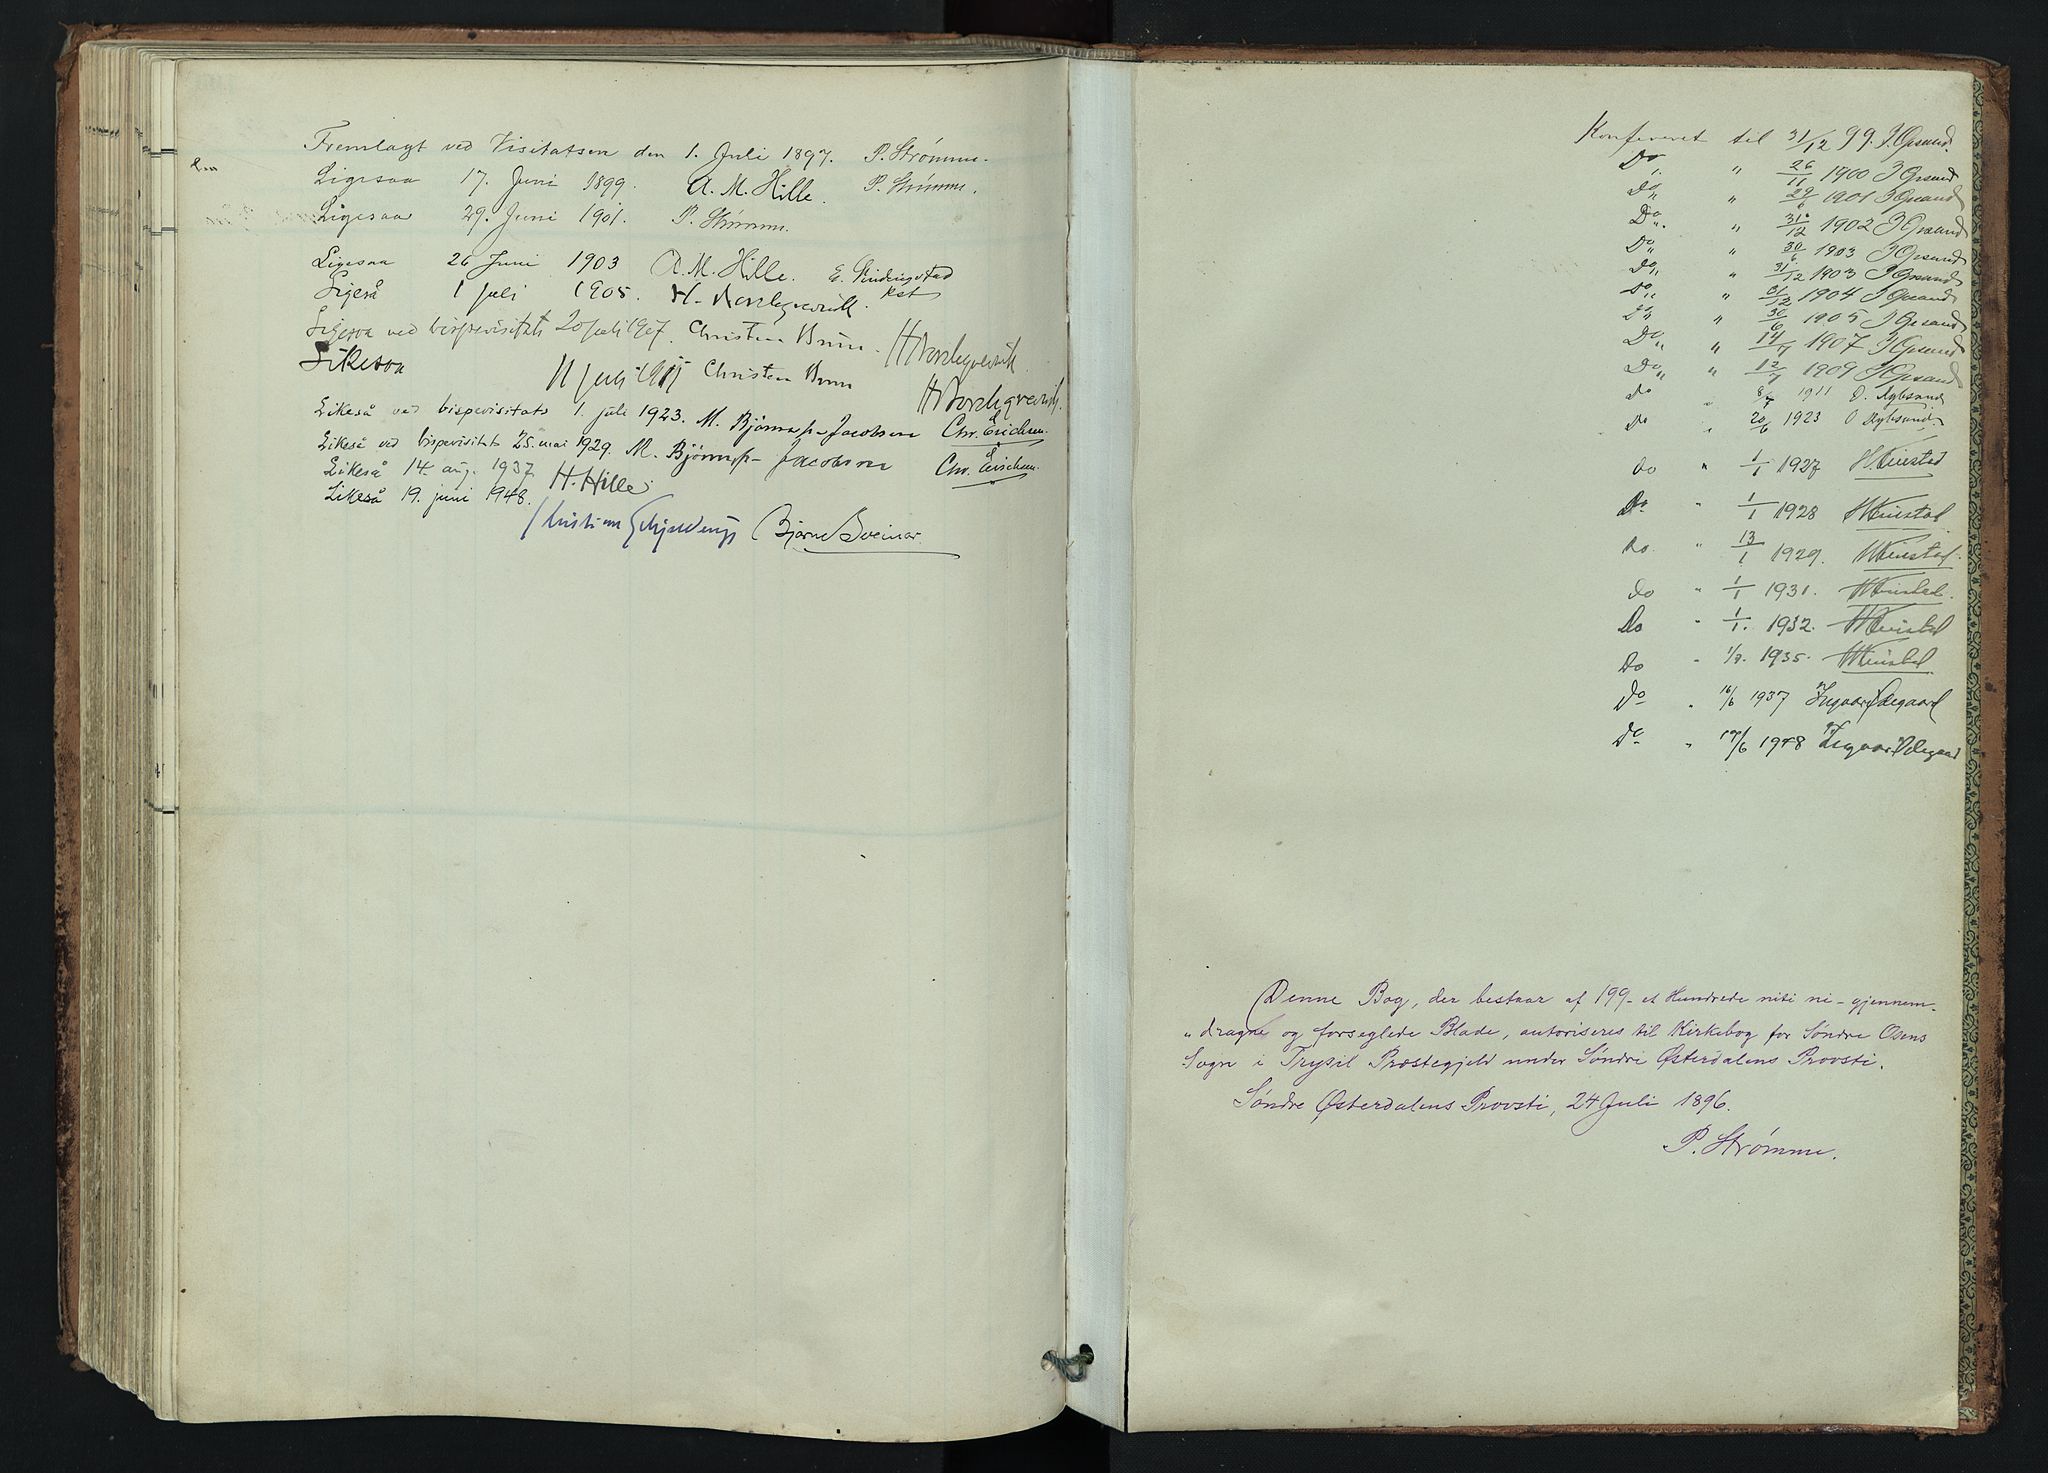 Fremlagt ved Visitatsen den 1. Juli 1897. P. Strømme.
Ligesaa 17. Juni 1899. A. M. Hille. P. Strømme.
Ligesaa 29. Juni 1901. P. Strømme.
Ligesaa 26 Juni 1903 A. M. Hille.
Ligeså 1 juli 1905.
Ligesaa ved bispevisitats 20 juli 1907. Christen Brun.
Likesaa 11 juli 1911 Christen Brun
Likeså ved bispevisitats 1. juli 1923. M. Bjønness-Jacobsen Chr. Erichsen.
Likeså ved bispevisitat 25. mai 1929. M. Bjønness-Jacobsen Chr. Erichsen.
Likeså 14. aug. 1937 H. Hille.
Likeså 19. juni 1948.
Kristian Schjelderup Bjarne Sveinar.
Konfereret til 31/12 99. J. Opsand.
Do " 26/11 1900 J Opsand
Do " 29/6 1901 J Opsand
Do " 31/12 1902 J Opsand
Do " 30/6 1903 J Opsand
Do " 31/12 1903 J Opsand
Do " 31/12 1904 J Opsand
Do " 30/6 1905 J Opsand
Do " 1907 J Opsand
Do " 12/7 1909 J Opsand
Do " 8/7 1911
Do " 20/6 1923
do " 1/1 1927
Do " 1/1 1928
Do. " 13/1 1929.
do " 1/1 1931.
Do " 1/1. 1932.
Do " 1935.
Do " 16/6 1937 Ingvar Ødegaard
Do " 1948 Ingvar Ødegaard
Denne Bog, der bestaar af 199 - et Hundrede niti ni - gjennem-
"dragne og forseglede Blade, autoriseres til Kirkebog for Søndre Osens
Sogn i Trysil Præstegjeld under Søndre Østerdalens Provsti.
Søndre Østerdalens Provsti, 24 Juli 1896.
P. Strømme.